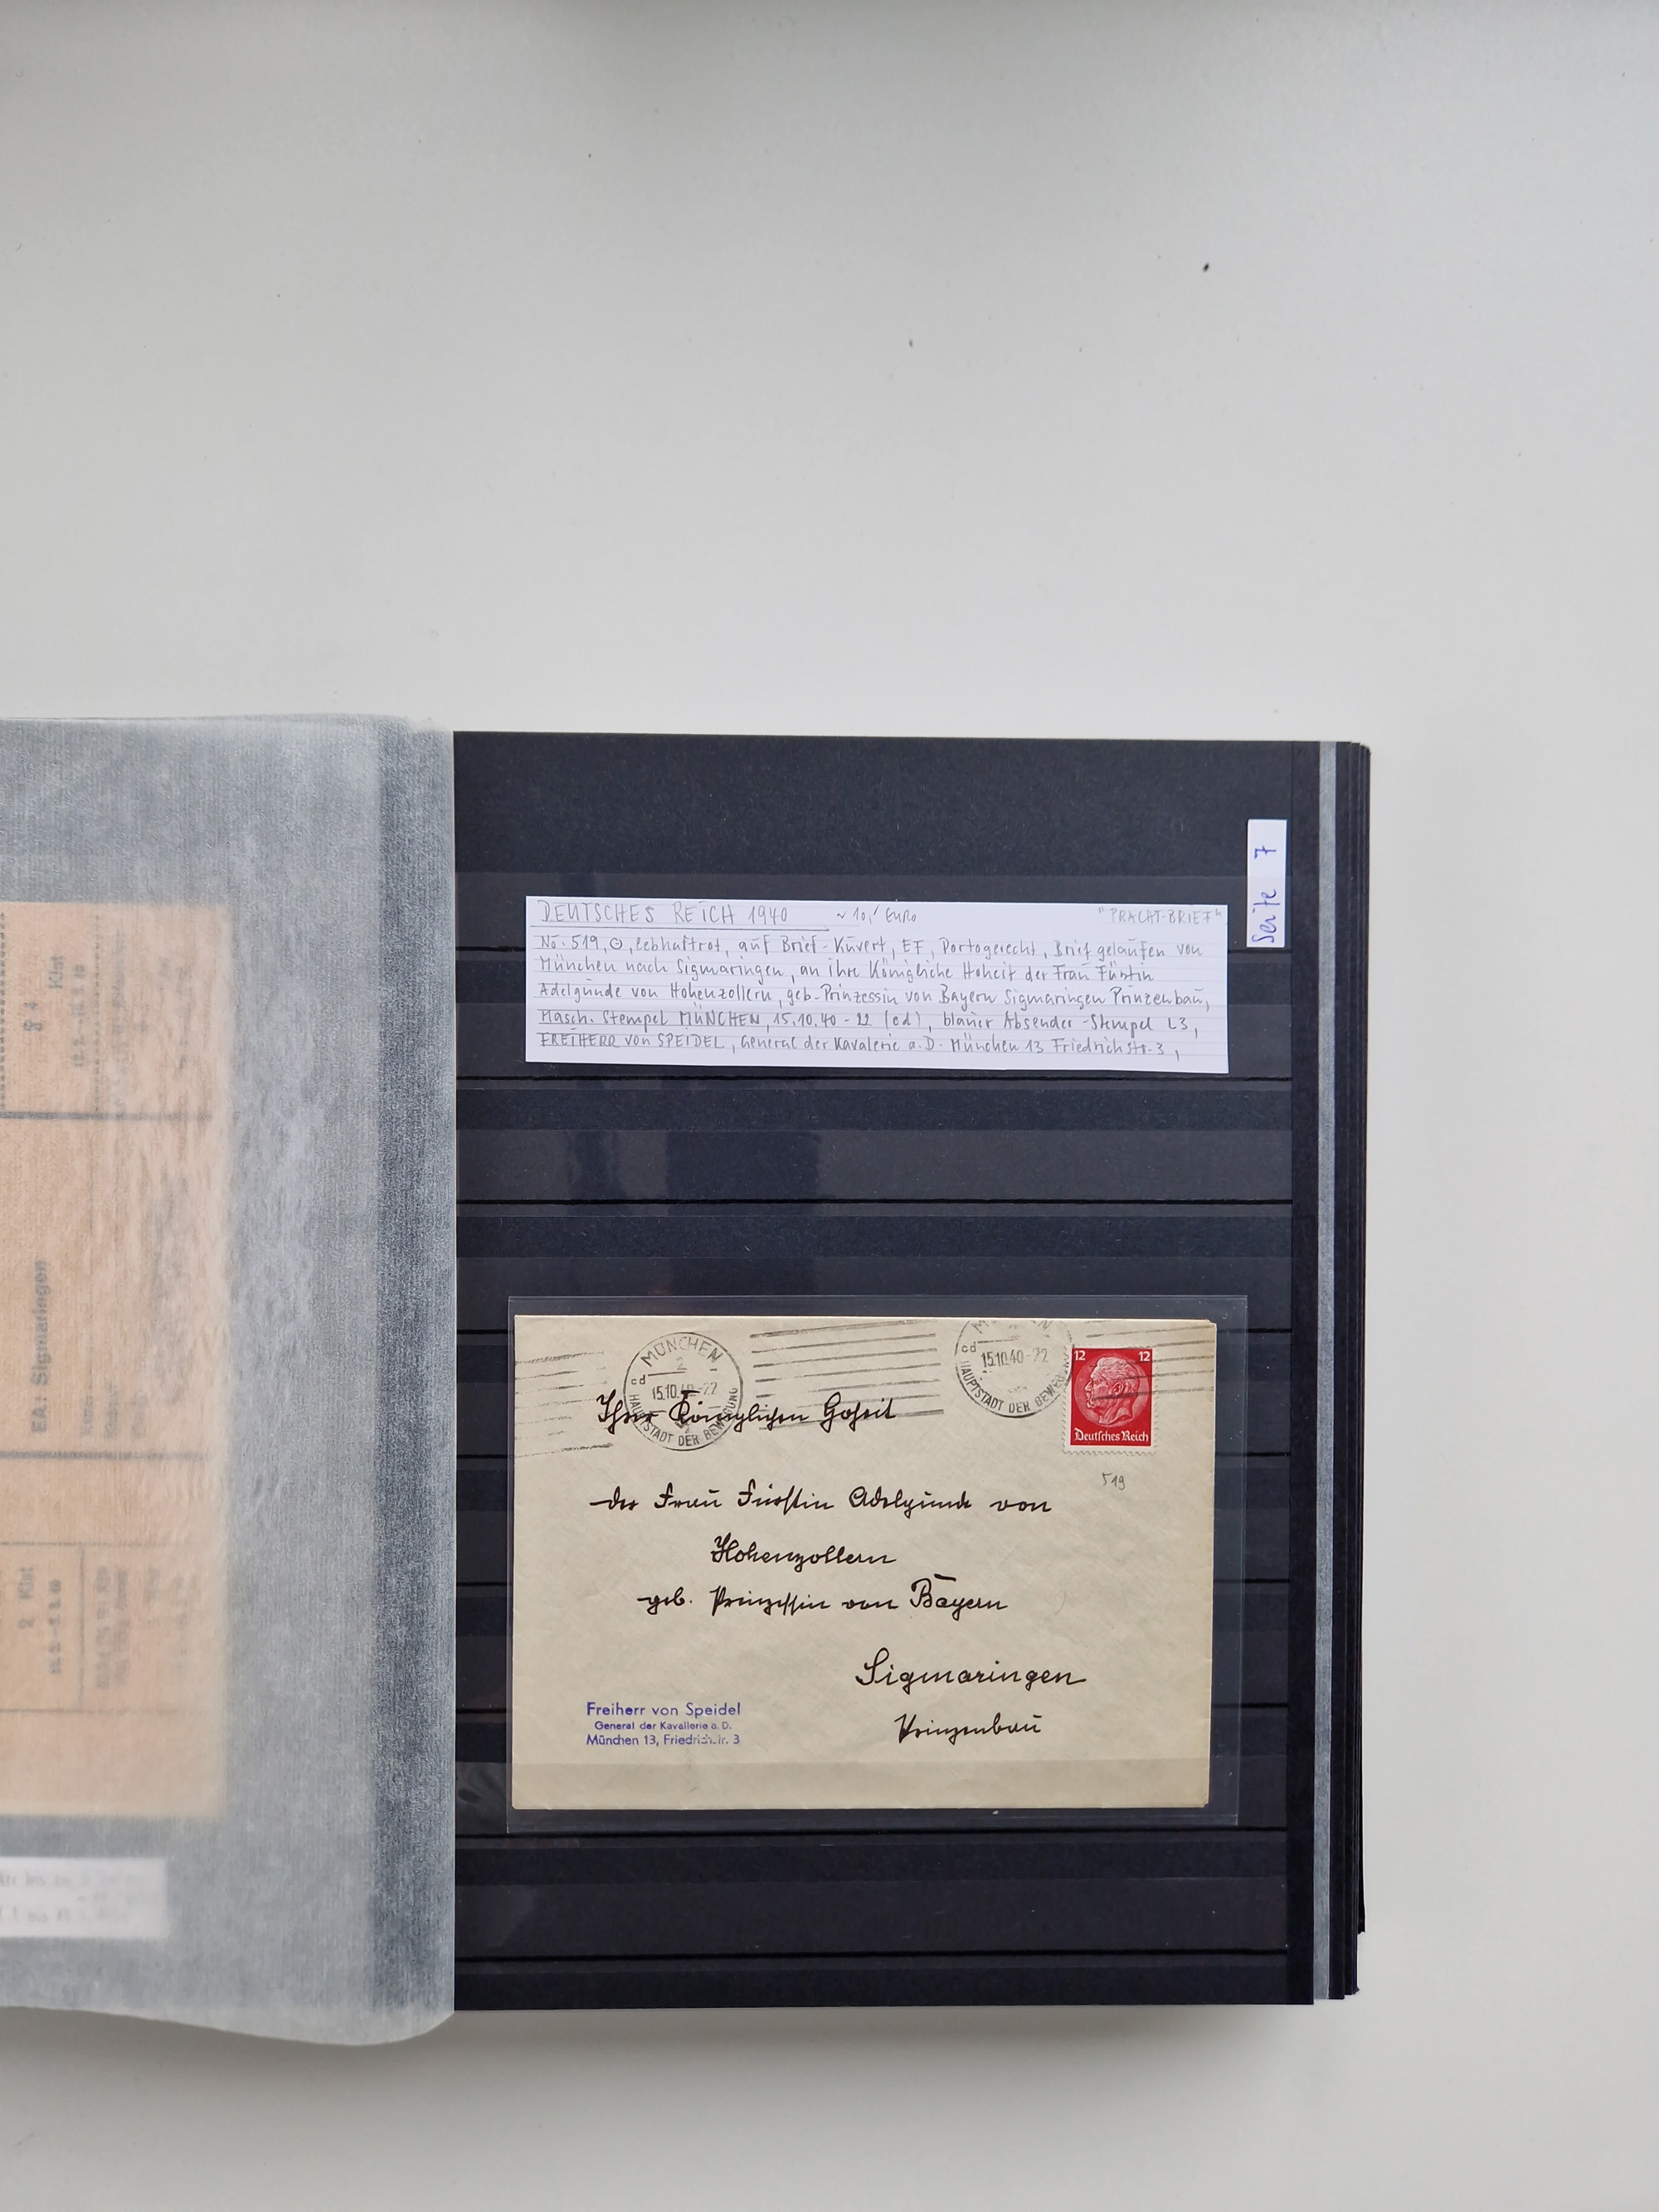 Seite 7
DEUTSCHES REICH 1940 ~ 10,- EURO "PRACHT-BRIEF"
No. 519, ⊙, lebhaftrot, auf Brief-Kuvert, EF, Portogerecht, Brief gelaufen von
München nach Sigmaringen, an ihre Königliche Hoheit der Frau Fürstin
Adelgunde von Hohenzollern, geb. Prinzessin von Bayern Sigmaringen Prinzenbau,
Masch. Stempel MÜNCHEN, 15.10.40-22 (cd), blauer Absender-Stempel L3,
FREIHERR von SPEIDEL, General der Kavalerie a.D. München 13 Friedrichstr. 3,
MÜNCHEN
2
cd
15.10.40-22
HAUPTSTADT DER BEWEGUNG
cd
15.10.40-22
HAUPTSTADT DER BEWEGUNG
12 12
Deutsches Reich
519
Ihrer Königlichen Hoheit
der Frau Fürstin Adelgunde von
Hohenzollern
geb. Prinzessin von Bayern
Sigmaringen
Prinzenbau
Freiherr von Speidel
General der Kavallerie a. D.
München 13, Friedrichstr. 3
EA: Sigmaringen